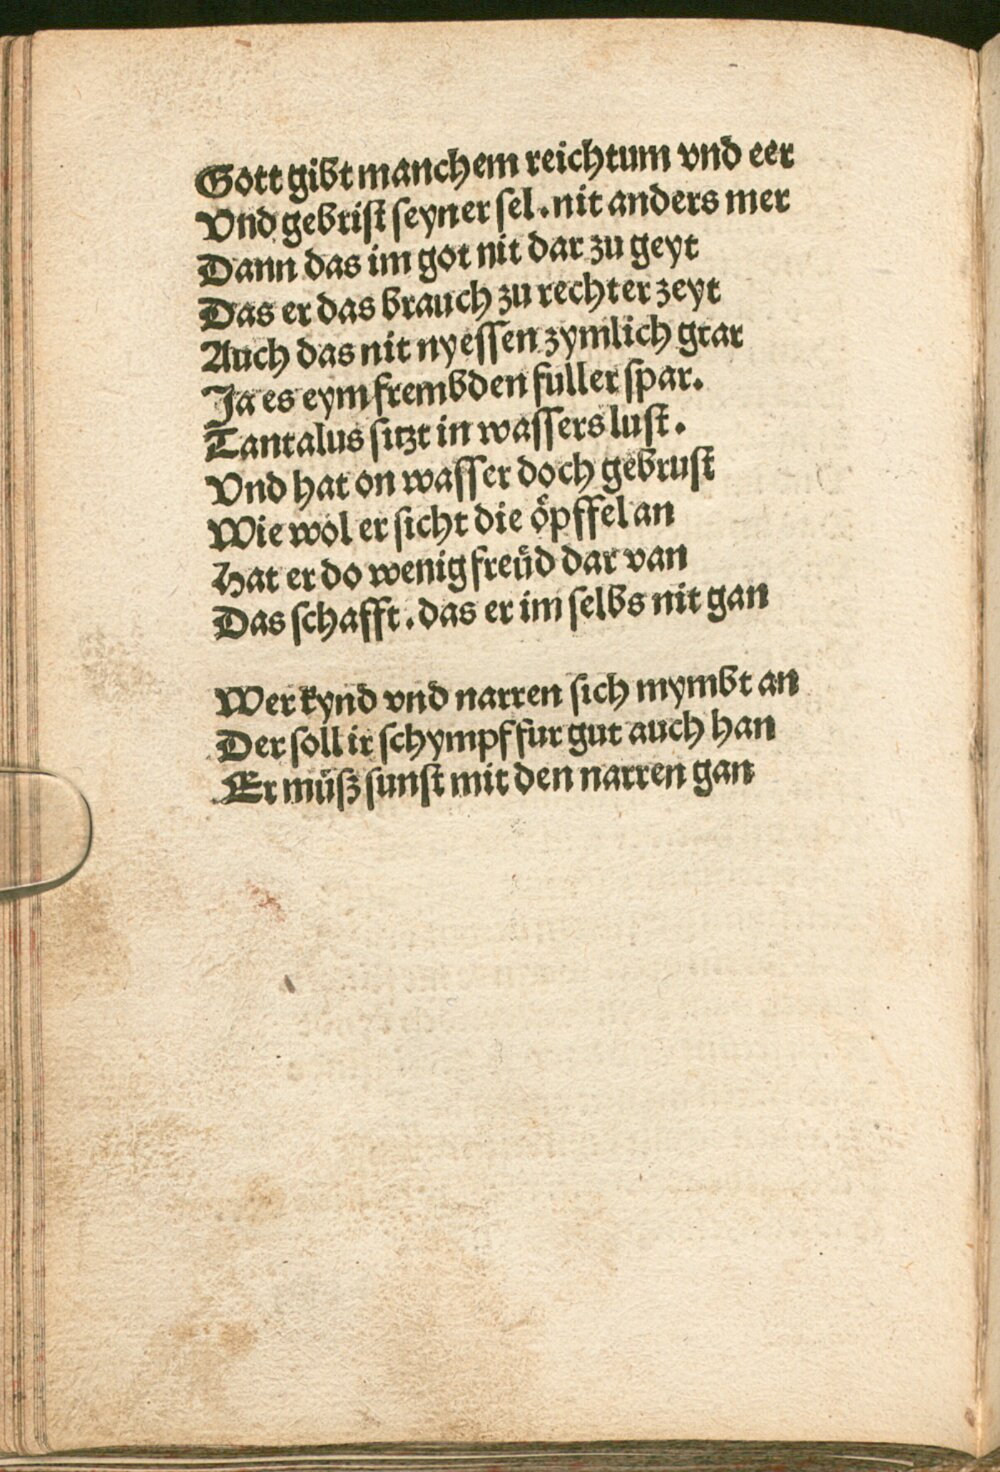 Gott gibt manchem reichtum vnd eer
Vnd gebrist seyner sel. nit anders mer
Dann das im got nit dar zu geyt
Das er das brauch zu rechter zeyt
Auch das nit nyessen zymlich gtar
Ja es eym frembden fuller spar.
Tantalus sitzt in wassers lust.
Vnd hat on wasser doch gebrust
Wie wol er sicht die öpffel an
Hat er do wenig freüd dar van
Das schafft. das er im selbs nit gan

Wer kynd vnd narren sich mymbt an
Der soll ir schympf fur gut auch han
Er müsz sunst mit den narren gan